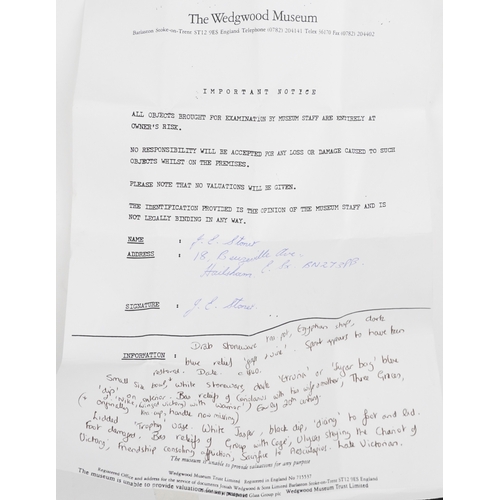 The Wedgwood Museum
Barlaston Stoke-on-Trent ST12 9ES England Telephone (0782) 204141 Telex 36170 Fax (0782) 204402
IMPORTANT NOTICE
ALL OBJECTS BROUGHT FOR EXAMINATION BY MUSEUM STAFF ARE ENTIRELY AT
OWNER'S RISK.
NO RESPONSIBILITY WILL BE ACCEPTED FOR ANY LOSS OR DAMAGE CAUSED TO SUCH
OBJECTS WHILST ON THE PREMISES.
PLEASE NOTE THAT NO VALUATIONS WILL BE GIVEN.
THE IDENTIFICATION PROVIDED IS THE OPINION OF THE MUSEUM STAFF AND IS
NOT LEGALLY BINDING IN ANY WAY.
NAME : J. E. Stow
ADDRESS : 18, Ave.
Hailsham E. Sx. BN27
SIGNATURE : J. E. Stow.
Drab Stoneware tea pot, Egyptian shape, dark
INFORMATION : blue relief 'grape & vine'. Spout appears to have been
restored. Date
Small size bowl, white stoneware, dark 'Etruria' or 'sugar bag' blue
'dip' on exterior. Bas reliefs of Coriolanus with his wife & mother, Three Graces,
Early 20th century.
(+ originally tea cup, handle now missing)
Lidded 'Trophy' vase. White Jasper, black dip, 'diceing' to foot and lid.
Foot damaged. Bas reliefs of Group with Cage, Ulysses staying the Chariot of
Victory, Friendship consoling affliction, Sacrifice to Aesculapius. Late Victorian.
The museum is unable to provide valuations for any purpose
Wedgwood Museum Trust Limited Registered in England No 715537
Registered Office and address for the service of documents Josiah Wedgwood & Sons Limited Barlaston Stoke-on-Trent ST12 9ES
The museum is unable to provide valuations for any purpose Glass Group plc Wedgwood Museum Trust Limited